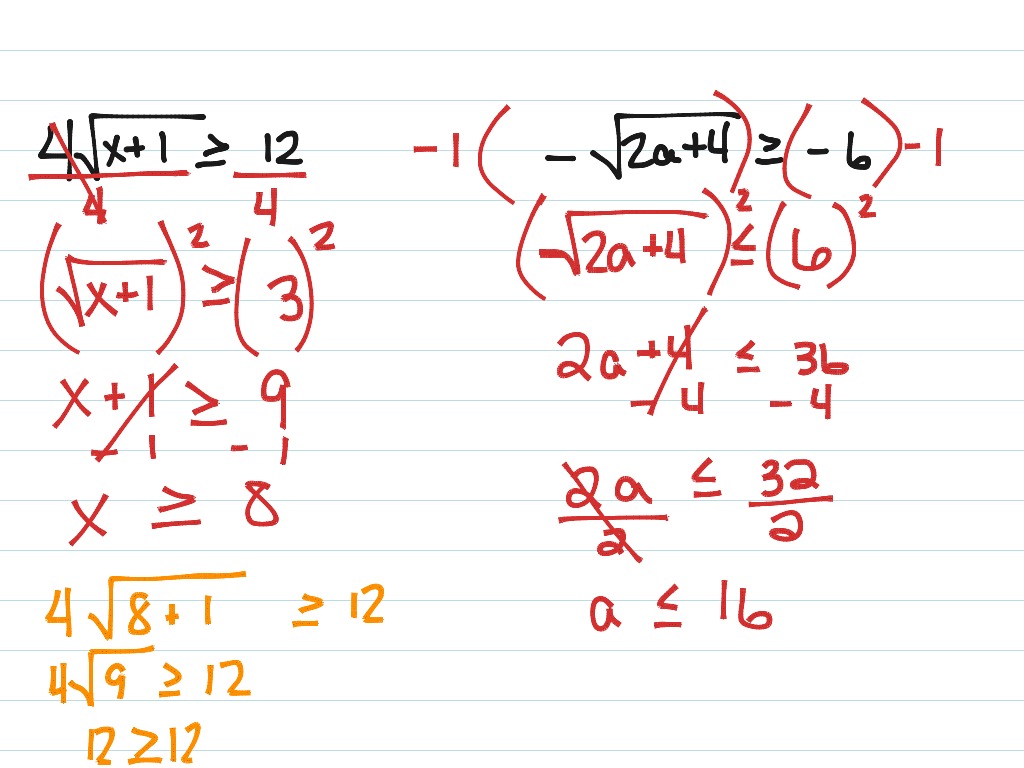 4√(x+1) ≥ 12
4 4
(√(x+1))² ≥ (3)²
x + 1 ≥ 9
- 1 - 1
x ≥ 8
4√(8+1) ≥ 12
4√9 ≥ 12
12 ≥ 12
-1(-√(2a+4)) ≥ (-6)-1
(-√(2a+4))² ≤ (6)²
2a + 4 ≤ 36
- 4 - 4
2a ≤ 32
2 2
a ≤ 16